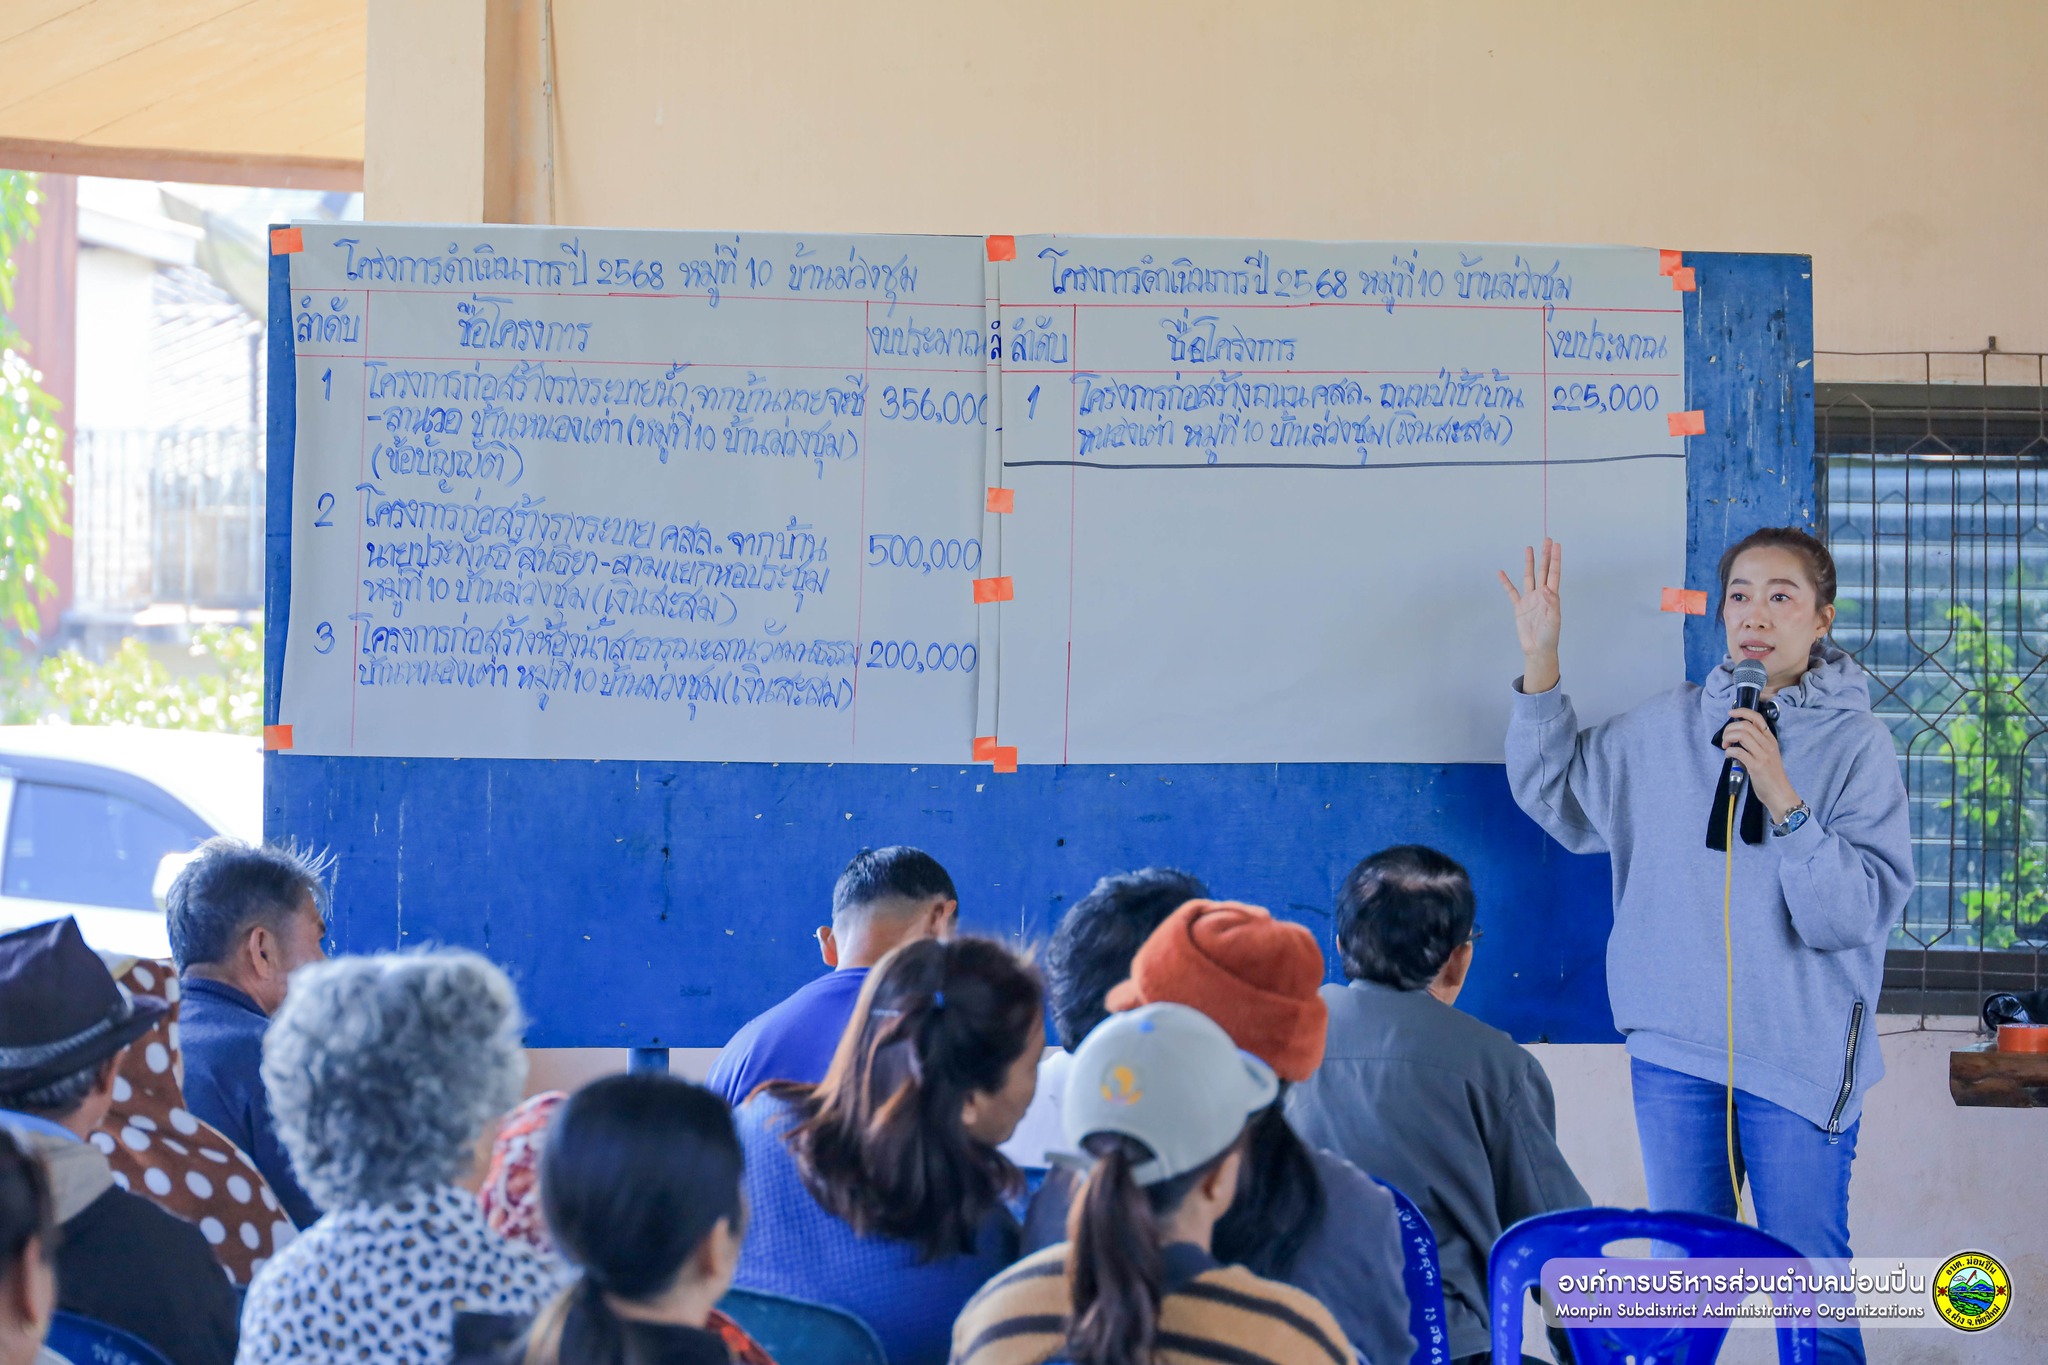 โครงการดำเนินการปี 2568 หมู่ที่ 10 บ้านม่วงชุม
ลำดับ ชื่อโครงการ งบประมาณ
1 โครงการก่อสร้างรางระบายน้ำ จากบ้านนายจะชี 356,000
-ลานวอ บ้านหนองเต่า (หมู่ที่ 10 บ้านม่วงชุม)
(ข้อบัญญัติ)
2 โครงการก่อสร้างรางระบาย คสล. จากบ้าน
นายประพันธ์ สุนธิยา-สามแยกหอประชุม 500,000
หมู่ที่ 10 บ้านม่วงชุม (เงินสะสม)
3 โครงการก่อสร้างห้องน้ำสาธารณะลานวัฒนธรรม 200,000
บ้านหนองเต่า หมู่ที่ 10 บ้านม่วงชุม (เงินสะสม)
โครงการดำเนินการปี 2568 หมู่ที่ 10 บ้านม่วงชุม
ลำดับ ชื่อโครงการ งบประมาณ
1 โครงการก่อสร้างถนน คสล. ถนนป่าช้าบ้าน 225,000
หนองเต่า หมู่ที่ 10 บ้านม่วงชุม (เงินสะสม)
องค์การบริหารส่วนตำบลม่อนปิ่น
Monpin Subdistrict Administrative Organizations
อบต. ม่อนปิ่น
อ.ฝาง จ.เชียงใหม่